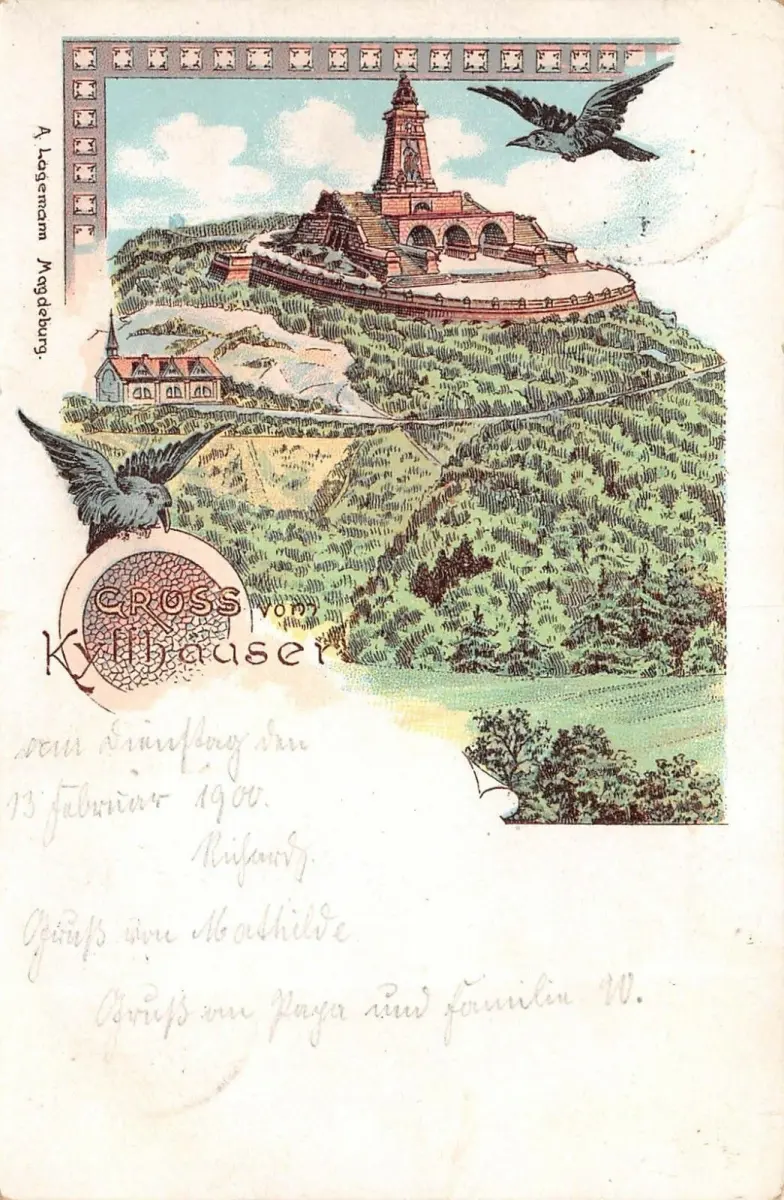 A. Logemann Magdeburg.
GRUSS vom
Kyffhäuser
am Dienstag den
13 Februar 1900.
Richard.
Gruß von Mathilde
Gruß an Papa und Familie W.